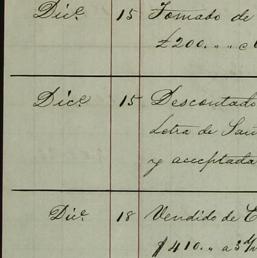 Dic.e 15 Tomado de
£200. " " c
Dic.e 15 Descontado
Letra de San
y aceptada
Dic.e 18 Vendido de C
$410. " a 3